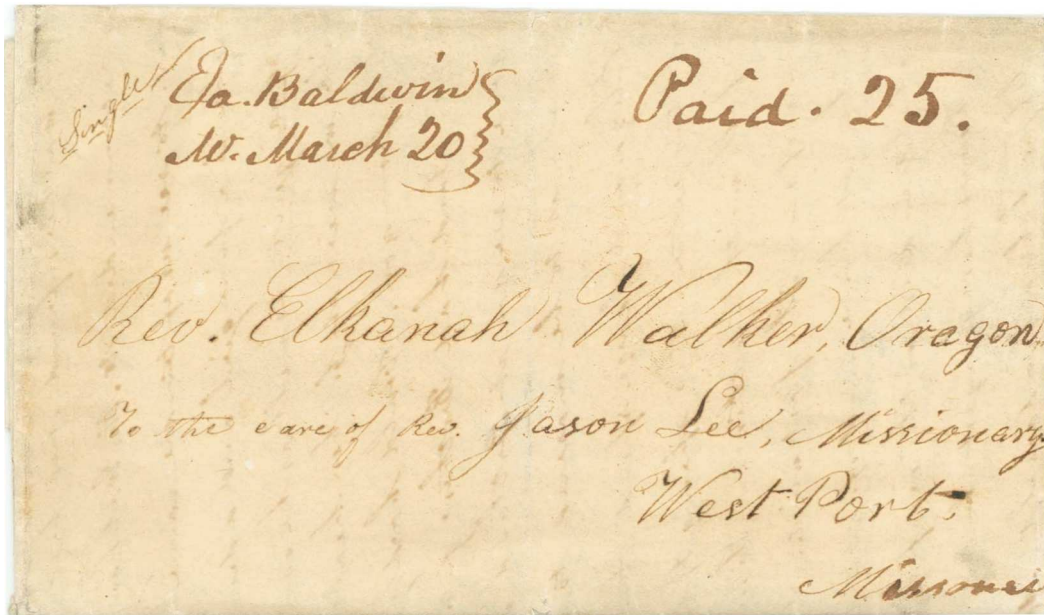 Single
Ea. Baldwin
Me. March 20
Paid. 25.
Rev. Elkanah Walker, Oregon
To the care of Rev. Jason Lee, Missionary
West Port,
Missouri